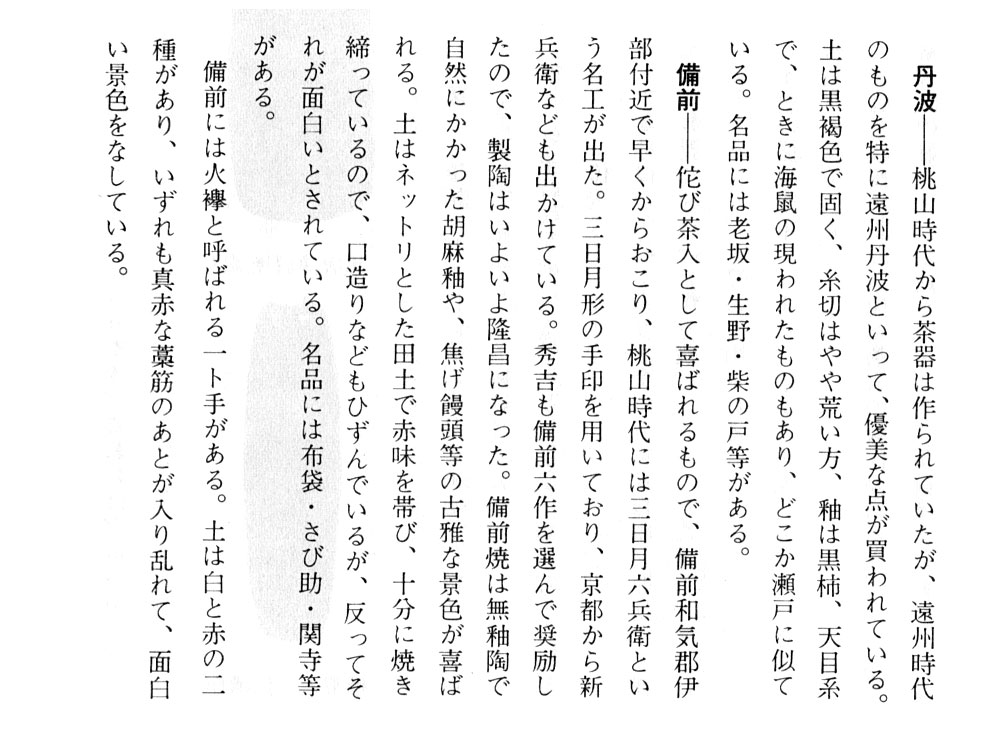 丹波――桃山時代から茶器は作られていたが、遠州時代
のものを特に遠州丹波といって、優美な点が買われている。
土は黒褐色で固く、糸切はやや荒い方、釉は黒柿、天目系
で、ときに海鼠の現われたものもあり、どこか瀬戸に似て
いる。名品には老坂・生野・柴の戸等がある。
備前――佗び茶入として喜ばれるもので、備前和気郡伊
部付近で早くからおこり、桃山時代には三日月六兵衛とい
う名工が出た。三日月形の手印を用いており、京都から新
兵衛なども出かけている。秀吉も備前六作を選んで奨励し
たので、製陶はいよいよ隆昌になった。備前焼は無釉陶で
自然にかかった胡麻釉や、焦げ饅頭等の古雅な景色が喜ば
れる。土はネットリとした田土で赤味を帯び、十分に焼き
締っているので、口造りなどもひずんでいるが、反ってそ
れが面白いとされている。名品には布袋・さび助・関寺等
がある。
備前には火襷と呼ばれる一ト手がある。土は白と赤の二
種があり、いずれも真赤な藁筋のあとが入り乱れて、面白
い景色をなしている。